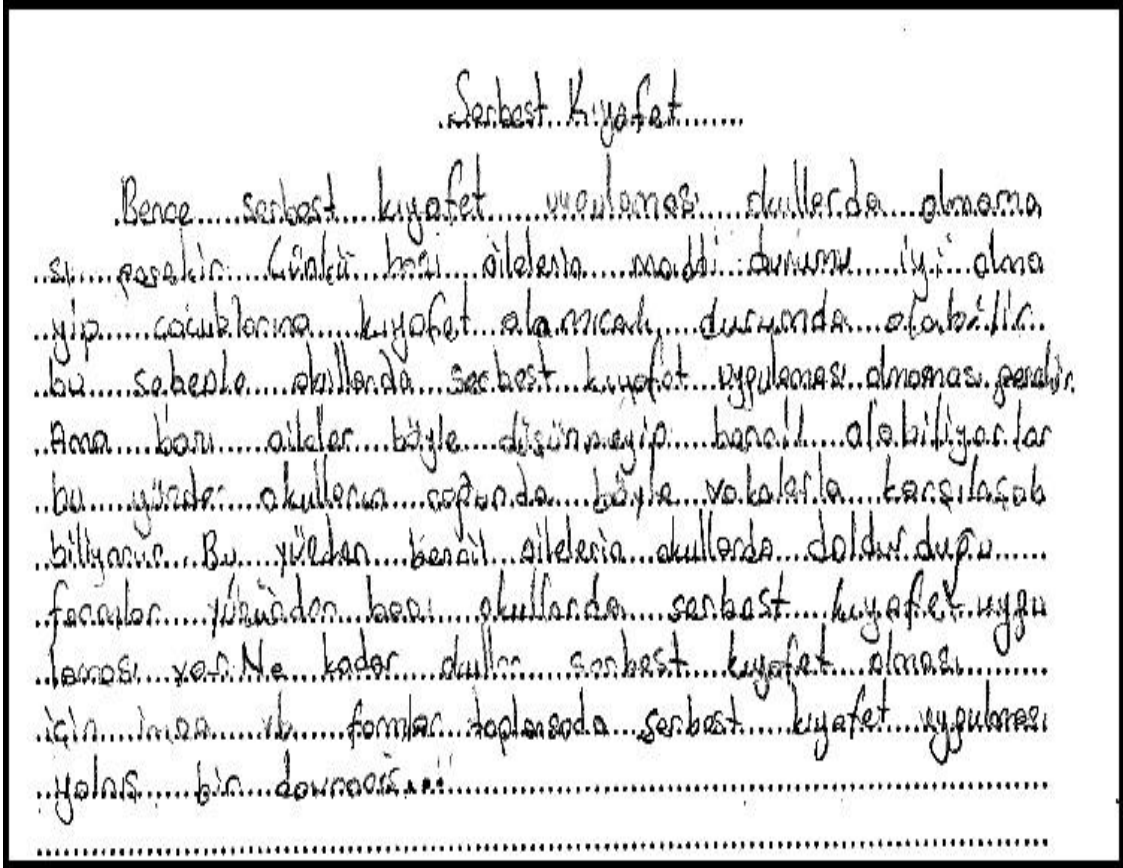 Serbest Kıyafet
Bence serbest kıyafet uygulaması okullarda olmama
sı gerekir. Çünkü bazı ailelerin maddi durumu iyi olma
yıp çocuklarına kıyafet alamıcak durumda olabilir.
bu sebeple okullarda serbest kıyafet uygulaması olmaması gerekir.
Ama bazı aileler böyle düşünmeyip bencil olabiliyorlar
bu yüzden okulların çoğunda böyle vakalarla karşılaşab
biliyoruz. Bu yüzden bencil ailelerin okullarda doldurduğu
formlar yüzünden bazı okullarda serbest kıyafet uygu
laması var. Ne kadar okullar serbest kıyafet olması
için imza vb. formlar toplansada serbest kıyafet uygulaması
yalnış bir davranış...